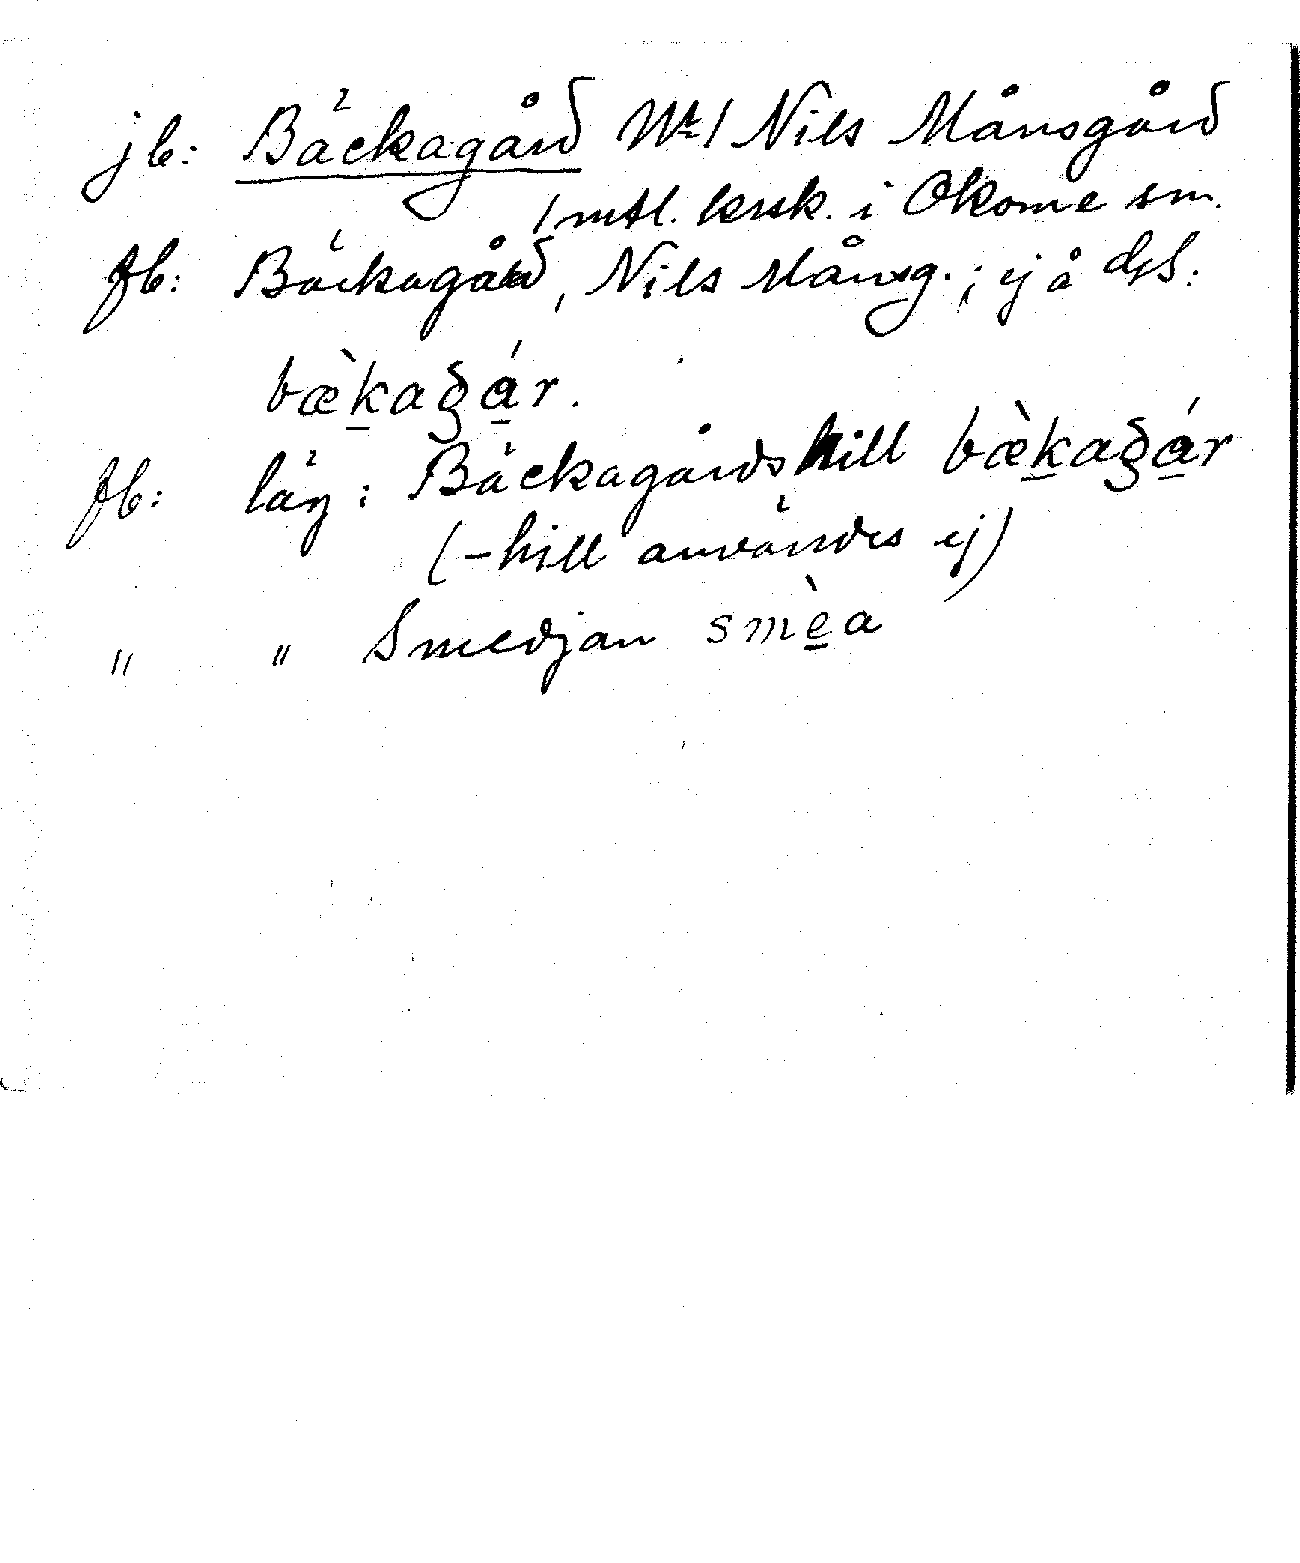 jb: Bäckagård Nr 1 Nils Månsgård
1 mtl. krsk. i Okome sn.
fb: Bäckagård, Nils Månsg.; ej å dgS:
bæ̀k̲agá̲r.
fb: läg: Bäckagårdshill bæ̀k̲agá̲r
(-hill användes ej)
" " Smedjan smè̲a